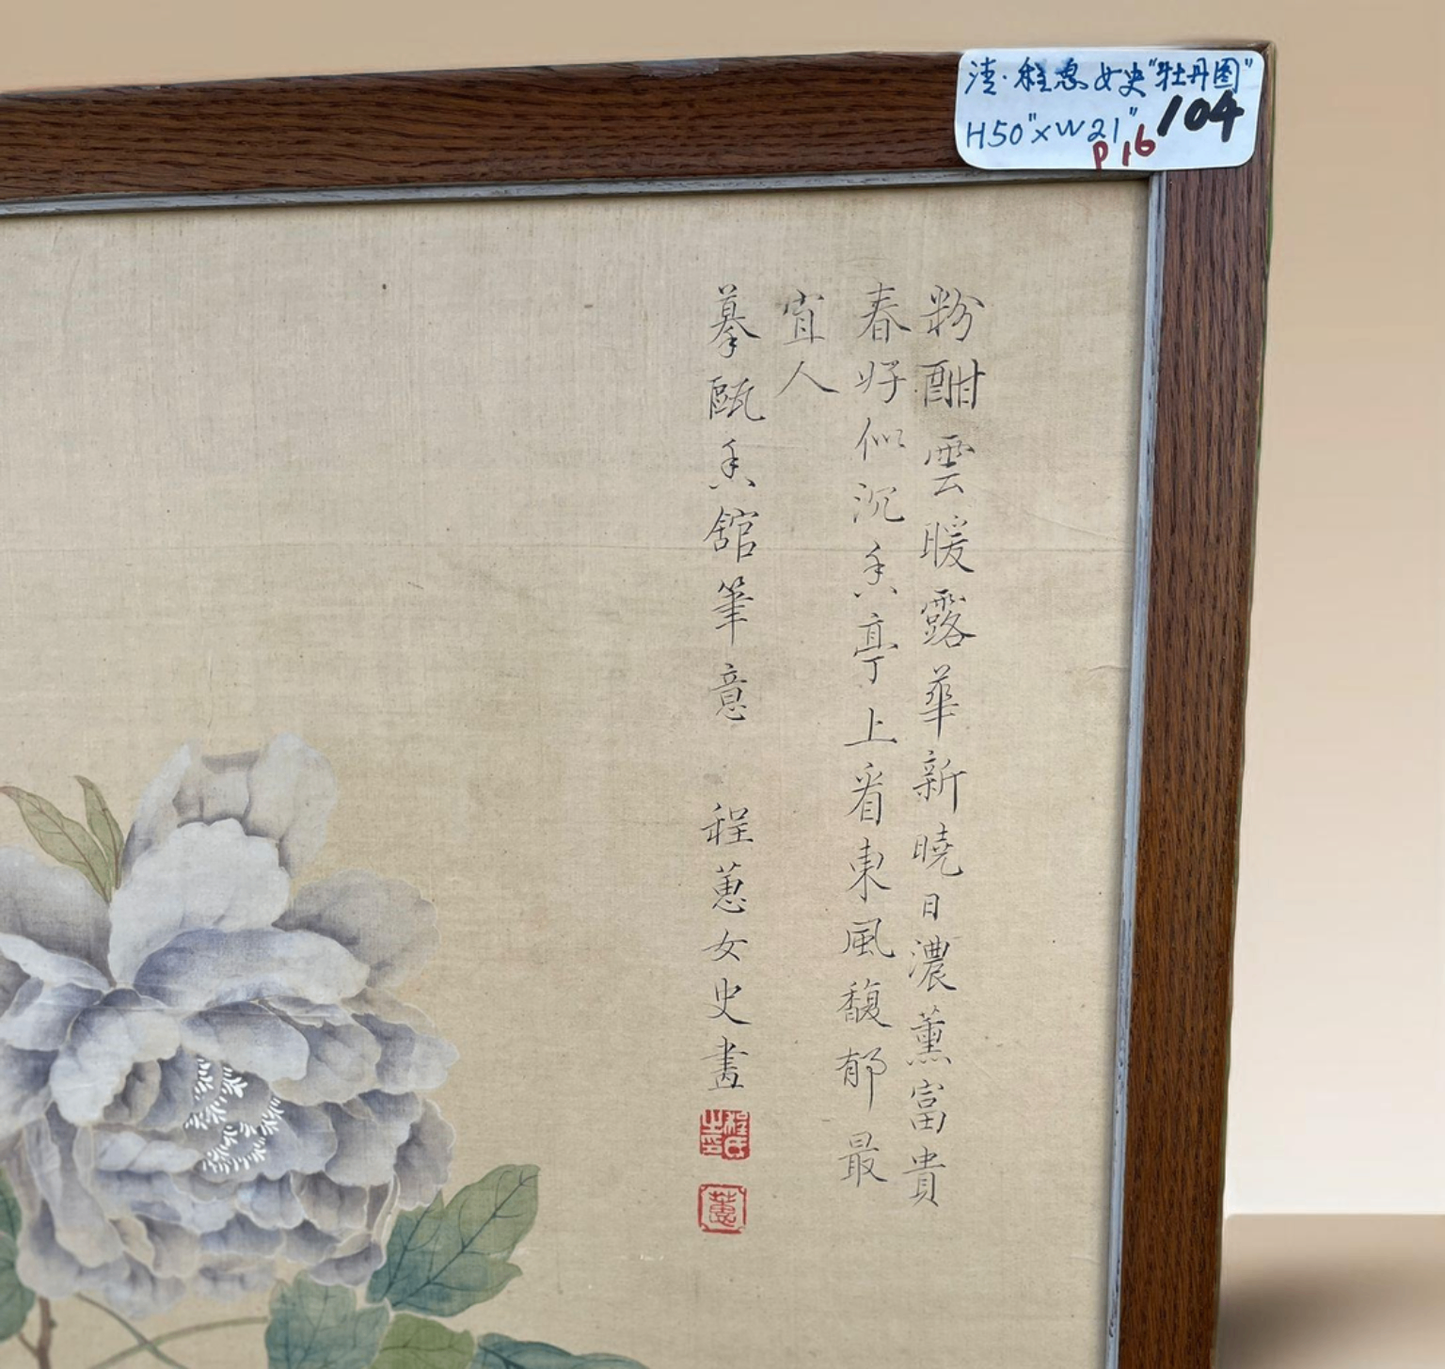 清·程蕙女史"牡丹图"
H50"×W21"
104
P16
粉酣雲暖露華新曉日濃薰富貴
春好似沉香亭上看東風馥郁最
宜人
摹甌香舘筆意 程蕙女史畫
程氏之印
蕙